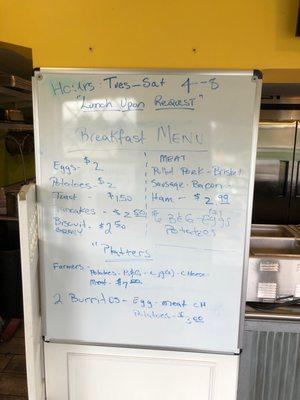 Hours: Tues-Sat 4-8
"Lunch Upon Request"
Breakfast MENU
Eggs - $2
Potatoes - $2
Toast - $1.50
Pancakes - $2.50
Biscuit - $2.50
GRAVY
MEAT
Pulled Pork - Brisket
Sausage - Bacon
Ham - $2.99
B&G - Eggs
Potatoes
"Platters
Farmers - Potatoes - B&G - Egg(2) - Cheese -
Meat - $7.00
2 Burritos - Egg - meat CH
Potatoes - $